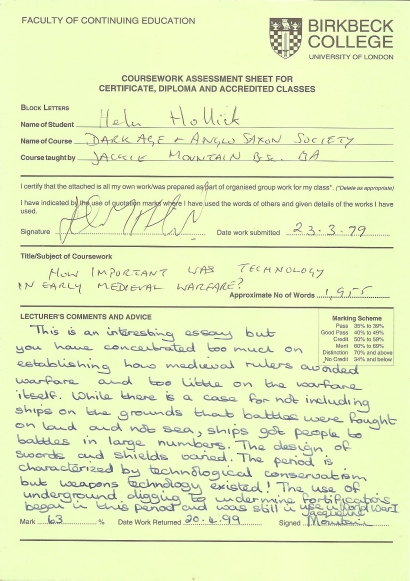 FACULTY OF CONTINUING EDUCATION
BIRKBECK
COLLEGE
UNIVERSITY OF LONDON
COURSEWORK ASSESSMENT SHEET FOR
CERTIFICATE, DIPLOMA AND ACCREDITED CLASSES
BLOCK LETTERS
Name of Student Helen Hollick
Name of Course DARK AGE + ANGLO SAXON SOCIETY
Course taught by JACKIE MOUNTAIN B.Sc. BA
I certify that the attached is all my own work/was prepared as part of organised group work for my class*. (*Delete as appropriate)
I have indicated by the use of quotation marks where I have used the words of others and given details of the works I have
used.
Signature Date work submitted 23-3-99
Title/Subject of Coursework
HOW IMPORTANT WAS TECHNOLOGY
IN EARLY MEDIEVAL WARFARE?
Approximate No of Words 1,955
LECTURER'S COMMENTS AND ADVICE
Marking Scheme
Pass 35% to 39%
Good Pass 40% to 49%
Credit 50% to 59%
Merit 60% to 69%
Distinction 70% and above
No Credit 34% and below
This is an interesting essay but
you have concentrated too much on
establishing how medieval rulers avoided
warfare and too little on the warfare
itself. While there is a case for not including
ships on the grounds that battles were fought
on land and not sea, ships got people to
battles in large numbers. The design of
swords and shields varied. The period is
characterized by technological conservatism
but weapons technology existed! The use of
underground digging to undermine fortifications
began in this period and was still in use in World War I
Mark 63 % Date Work Returned 20.4.99 Signed Jacqueline
Mountain